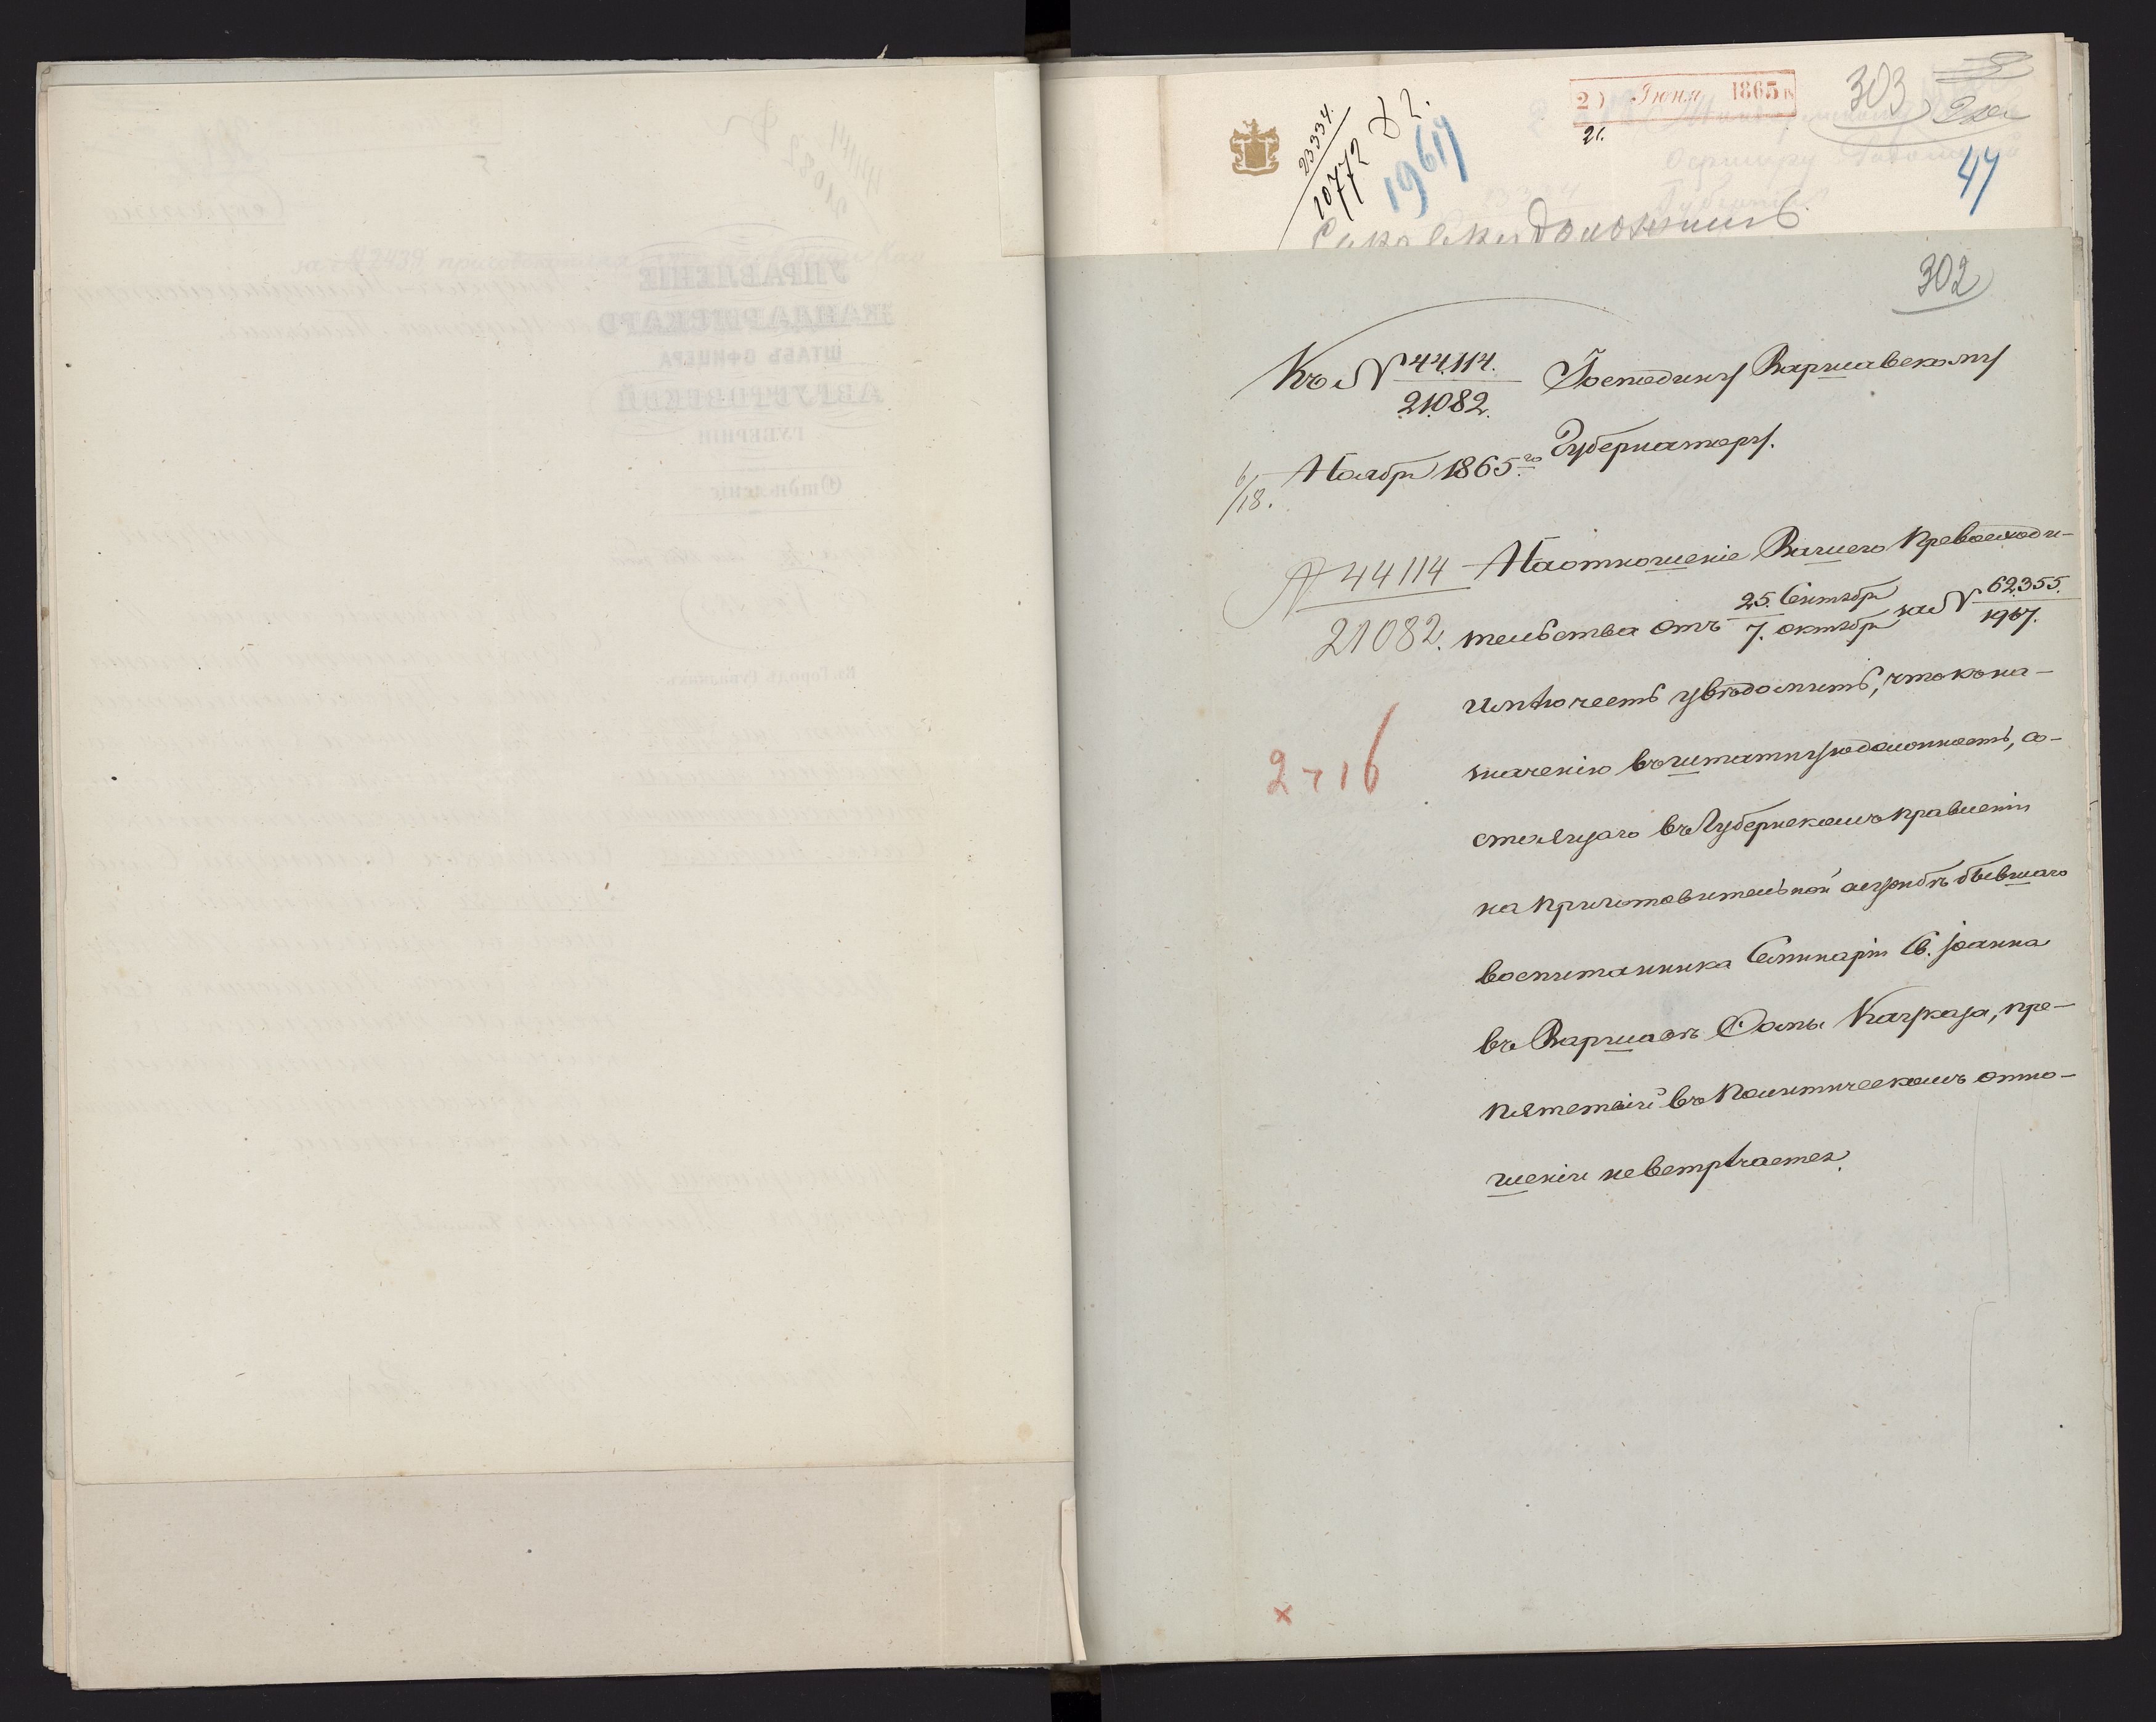 23334.
10772
D2.
1967
2) Июня 1865
21.
303
47
доложить
302
Къ № 44114. / 21082.
Господину Варшавскому
Губернатору.
6/18. Ноября 1865 го
№ 44114 / 21082.
На отношеніе Вашего Превосходи-
тельства отъ 25. Сентября / 7. Октября за № 62355. / 1967.
имѣю честь увѣдомить, что ко на-
значенію въ штатную должность, со-
стоящаго въ Губернскомъ Правленіи
на приготовительной службѣ бывшаго
воспитанника Семинаріи Св. Іоанна
въ Варшавѣ Фомы, пре-
пятствій въ политическомъ отно-
шеніи не встрѣчается.
2716